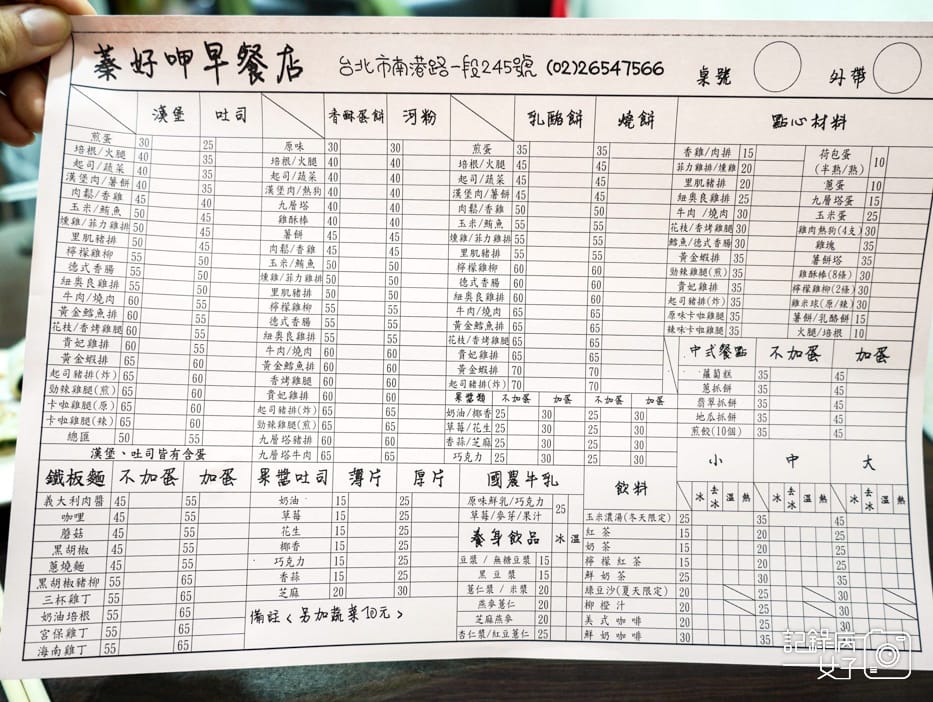 蓁好呷早餐店 台北市南港路一段245號 (02)26547566 桌號 外帶
漢堡 吐司
煎蛋 30 25
培根/火腿 40 35
起司/蔬菜 40 35
漢堡肉/薯餅 40 35
肉鬆/香雞 45 40
玉米/鮪魚 50 45
燻雞/菲力雞排 50 45
里肌豬排 50 45
檸檬雞柳 55 50
德式香腸 55 50
紐奧良雞排 55 50
牛肉/燒肉 60 55
黃金鱈魚排 60 55
花枝/香烤雞腿 60 55
貴妃雞排 60 55
黃金蝦排 65 60
起司豬排(炸) 65 60
勁辣雞腿(煎) 65 60
卡啦雞腿(原) 65 60
卡啦雞腿(辣) 65 60
總匯 50 55
漢堡、吐司皆有含蛋
香酥蛋餅 河粉
原味 30 30
培根/火腿 40 40
起司/蔬菜 40 40
漢堡肉/熱狗 40 40
九層塔 40 40
雞酥棒 40 40
薯餅 45 45
肉鬆/香雞 45 45
玉米/鮪魚 50 50
燻雞/菲力雞排 50 50
里肌豬排 50 50
檸檬雞柳 55 55
德式香腸 55 55
紐奧良雞排 55 55
牛肉/燒肉 60 60
黃金鱈魚排 60 60
香烤雞腿 60 60
貴妃雞排 60 60
起司豬排(炸) 65 65
勁辣雞腿(煎) 65 65
九層塔豬排 60 60
九層塔牛肉 65 65
乳酪餅 燒餅
煎蛋 35 35
培根/火腿 45 45
起司/蔬菜 45 45
漢堡肉/薯餅 45 45
肉鬆/香雞 50 50
玉米/鮪魚 55 55
燻雞/菲力雞排 55 55
里肌豬排 55 55
檸檬雞柳 60 60
德式香腸 60 60
紐奧良雞排 60 60
牛肉/燒肉 65 65
黃金鱈魚排 65 65
花枝/香烤雞腿 65 65
貴妃雞排 65 65
黃金蝦排 70 70
起司豬排(炸) 70 70
果醬類 不加蛋 加蛋 不加蛋 加蛋
奶油/椰香 25 30 25 30
草莓/花生 25 30 25 30
香蒜/芝麻 25 30 25 30
巧克力 25 30 25 30
點心材料
香雞/肉排 15
菲力雞排/燻雞 20
里肌豬排 20
紐奧良雞排 25
牛肉/燒肉 30
花枝/香烤雞腿 30
鱈魚/德式香腸 30
黃金蝦排 35
勁辣雞腿(煎) 35
貴妃雞排 35
起司豬排(炸) 35
原味卡啦雞腿 35
辣味卡啦雞腿 35
荷包蛋
(半熟/熟) 10
蔥蛋 10
九層塔蛋 15
玉米蛋 25
雞肉熱狗(4支) 30
雞塊 35
薯餅塔 35
雞酥棒(8條) 30
檸檬雞柳(2條) 30
雞米球(原/辣) 30
薯餅/乳酪餅 15
火腿/培根 10
中式餐點 不加蛋 加蛋
蘿蔔糕 35 45
蔥抓餅 35 45
翡翠抓餅 35 45
地瓜抓餅 35 45
煎餃(10個) 35 45
鐵板麵 不加蛋 加蛋
義大利肉醬 45 55
咖哩 45 55
蘑菇 45 55
黑胡椒 45 55
蔥燒麵 45 55
黑胡椒豬柳 55 65
三杯雞丁 55 65
奶油培根 55 65
宮保雞丁 55 65
海南雞丁 55 65
果醬吐司 薄片 厚片
奶油 15 25
草莓 15 25
花生 15 25
椰香 15 25
巧克力 15 25
香蒜 15 25
芝麻 20 30
備註<另加蔬菜10元>
國農牛乳
原味鮮乳/巧克力
草莓/麥芽/果汁 25
養身飲品 冰 溫
豆漿/無糖豆漿 15
黑豆漿 15
薏仁漿/米漿 20
燕麥薏仁 20
芝麻燕麥 20
杏仁漿/紅豆薏仁 25
飲料 小 中 大
冰 去冰 溫 熱 冰 去冰 溫 熱 冰 去冰 溫 熱
玉米濃湯(冬天限定) 25 35 45
紅茶 15 20 25
奶茶 15 20 25
檸檬紅茶 15 20 25
鮮奶茶 25 35 45
綠豆沙(夏天限定) 20 25 30
柳橙汁 20 25 30
美式咖啡 20 25 30
鮮奶咖啡 30 35
記錄丙女子